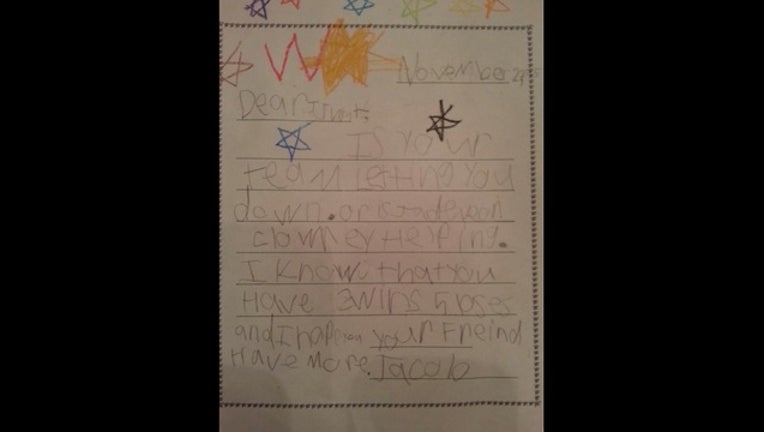 November
Dear
Is Your
team leting You
down. or is
Helping.
I Know that you
Have 3 wins
and I your Freind
Have More. Jacob